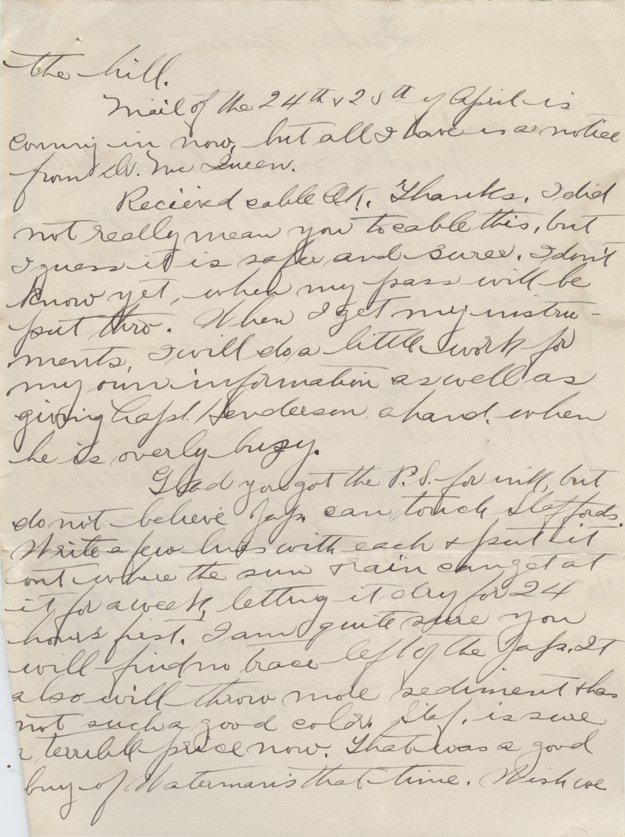 the hill.
Mail of the 24th & 25th of April is
coming in now, but all I have is a notice
from Dr. McQueen.
Recieved cable OK. Thanks. I did
not really mean you to cable this, but
I guess it is safe and surer. I don't
know yet, when my pass will be
put thro. When I get my instru-
ments, I will do a little work for
my own information as well as
giving Capt. Henderson a hand, when
he is overly busy.
Glad you got the P.S. for ink, but
do not believe Japs can touch Staffords.
Write a few lines with each & put it
out where the sun & rain can get at
it for a week, letting it dry for 24
hours first. I am quite sure you
will find no trace left of the Japs. It
also will throw more sediment & has
not such a good color. Staf. is sure
a terrible price now. That was a good
buy of Waterman's that time. Wish we